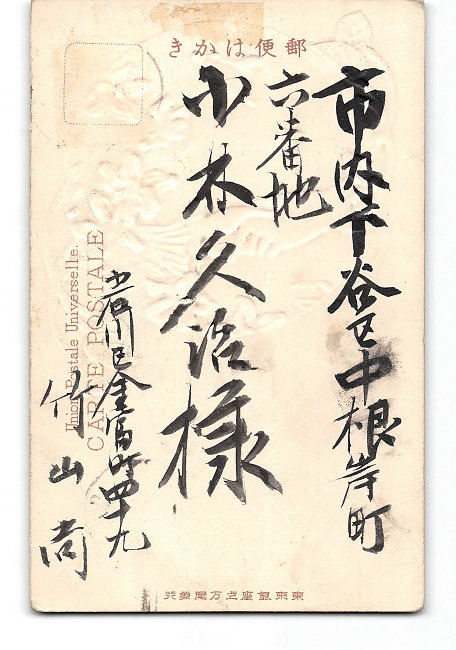 郵便はかき
市内下谷区中根岸町
六番地
小林久治様
小石川区金富町四十九
竹山尚
Union Postale Universelle.
CARTE POSTALE
東京銀座上方屋発行